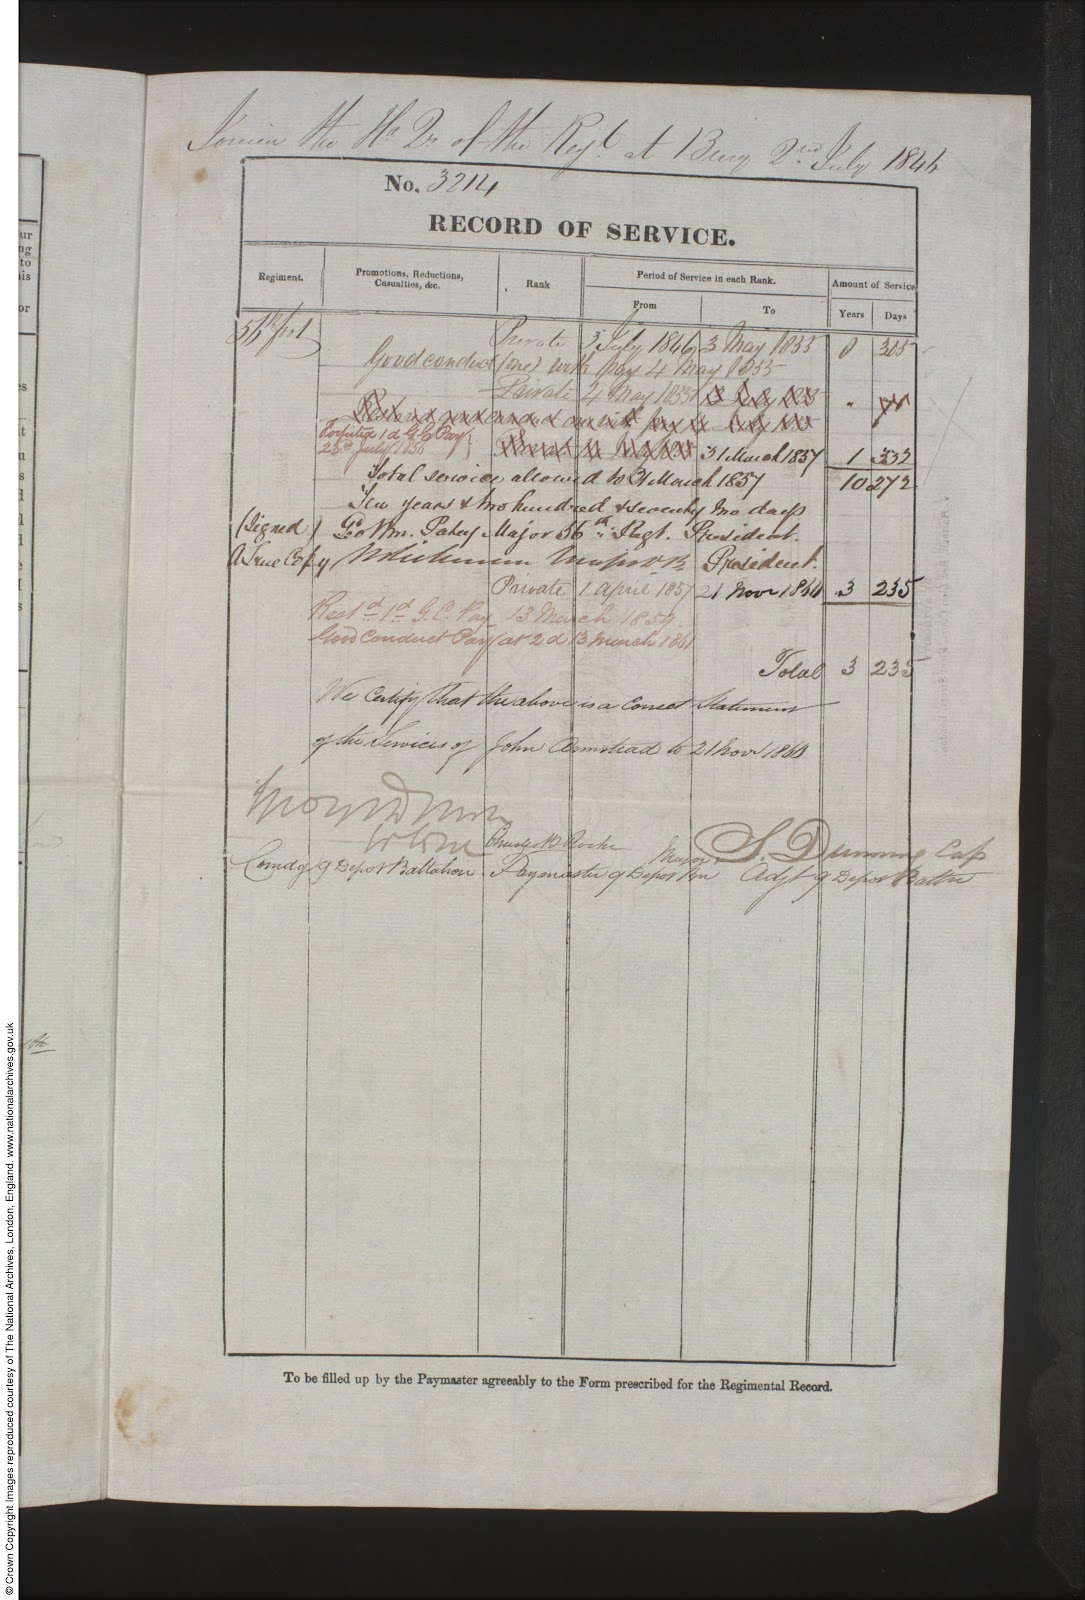 Joined the Hd Qrs of the Regt. at Bury 2nd July 1846
No. 3214
RECORD OF SERVICE.
Regiment.
Promotions, Reductions, Casualties, &c.
Rank
Period of Service in each Rank.
From
To
Amount of Service
Years
Days
56th foot Private 3 July 1846 3 May 1855 8 305
Good conduct (one) with pay 4 May 1855
Private 4 May 1855
Forfeited 1d G.C. Pay
23rd July 1856
31 March 1857 1 332
Total service allowed to 31 March 1857 10 272
Ten years & two hundred & seventy two days
(Signed) Geo Wm. Patey Major 56th Regt. President.
A True Copy President.
Private 1 April 1857 21 Novr 1860 3 235
Restd 1d G.C. Pay 13 March 1859
Good Conduct Pay at 2d 13 March 1861
Total 3 235
We Certify that the above is a Correct Statement
of the Services of John Armstead to 21 Novr 1860
Lt Colonel
Charles B. Roche
Major
S. Dunning Capt
Comdg 9 Depot Battalion
Paymaster 9 Depot Bn
Adjt 9 Depot Battn
To be filled up by the Paymaster agreeably to the Form prescribed for the Regimental Record.
© Crown Copyright Images reproduced courtesy of The National Archives, London, England. www.nationalarchives.gov.uk